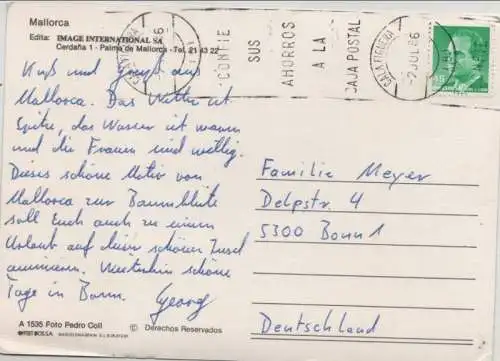 Mallorca
Edita: IMAGE INTERNATIONAL SA
Cerdaña 1 - Palma de Mallorca - Tel. 21 43 22
CONFIE
SUS
AHORROS
A LA
CAJA POSTAL
CALA FIGUERA
-2 JUL 86
45
Kuß und Gruß aus
Mallorca. Das Wetter ist
Spitze, das Wasser ist warm
und die Frauen sind willig.
Dieses schöne Motiv von
Mallorca zur Baumblüte
soll Euch auch zu einem
Urlaub auf dieser schönen Insel
animieren. Weiterhin schöne
Tage in Bonn.
Georg
Familie Meyer
Delpstr. 4
5300 Bonn 1
Deutschland
A 1535 Foto Pedro Coll
© Derechos Reservados